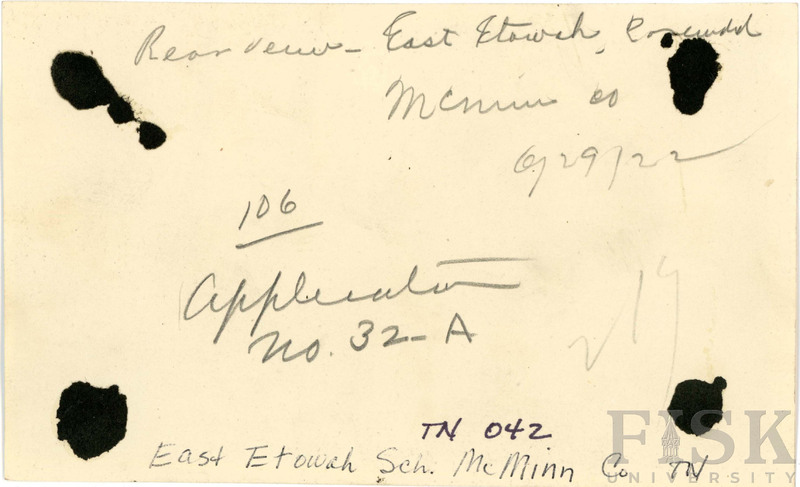 Rear view - East Etowah, Rosenwald
McMinn co
6/29/22
106
Application
No. 32-A
TN 042
East Etowah Sch. McMinn Co TN
FISK
UNIVERSITY